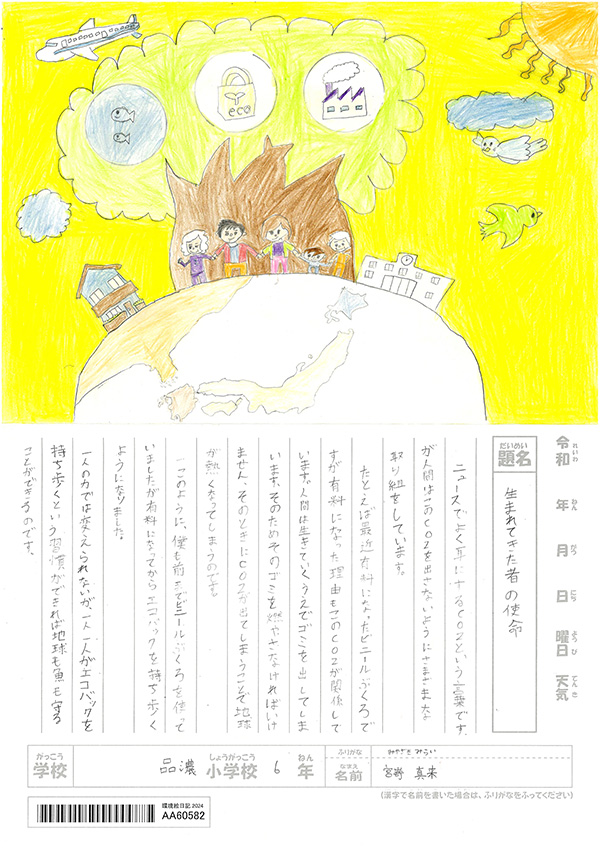 eco
令和 年 月 日 曜日 天気
れいわ ねん がつ にち ようび てんき
だいめい
題名
生まれてきた者の使命
ニュースでよく耳にするCO2という言葉です
が人間はこのCO2を出さないようにさまざまな
取り組をしています。
たとえば最近有料になったビニールぶくろで
すが有料になった理由もこのCO2が関係して
います。人間は生きていくうえでゴミを出してしま
います。そのためそのゴミを燃やさなければいけ
ません。そのときにCO2が出てしまうことで地球
が熱くなってしまうのです。
このように、僕も前までビニールぶくろを使って
いましたが有料になってからエコバックを持ち歩く
ようになりました。
一人の力では変えられないが、一人一人がエコバックを
持ち歩くという習慣ができれば地球も魚も守る
ことができるのです。
がっこう
学校
品濃
しょうがっこう
小学校
6
ねん
年
ふりがな
みやざき みらい
なまえ
名前
宮嵜 真来
(漢字で名前を書いた場合は、ふりがなをふってください)
環境絵日記 2024
AA60582